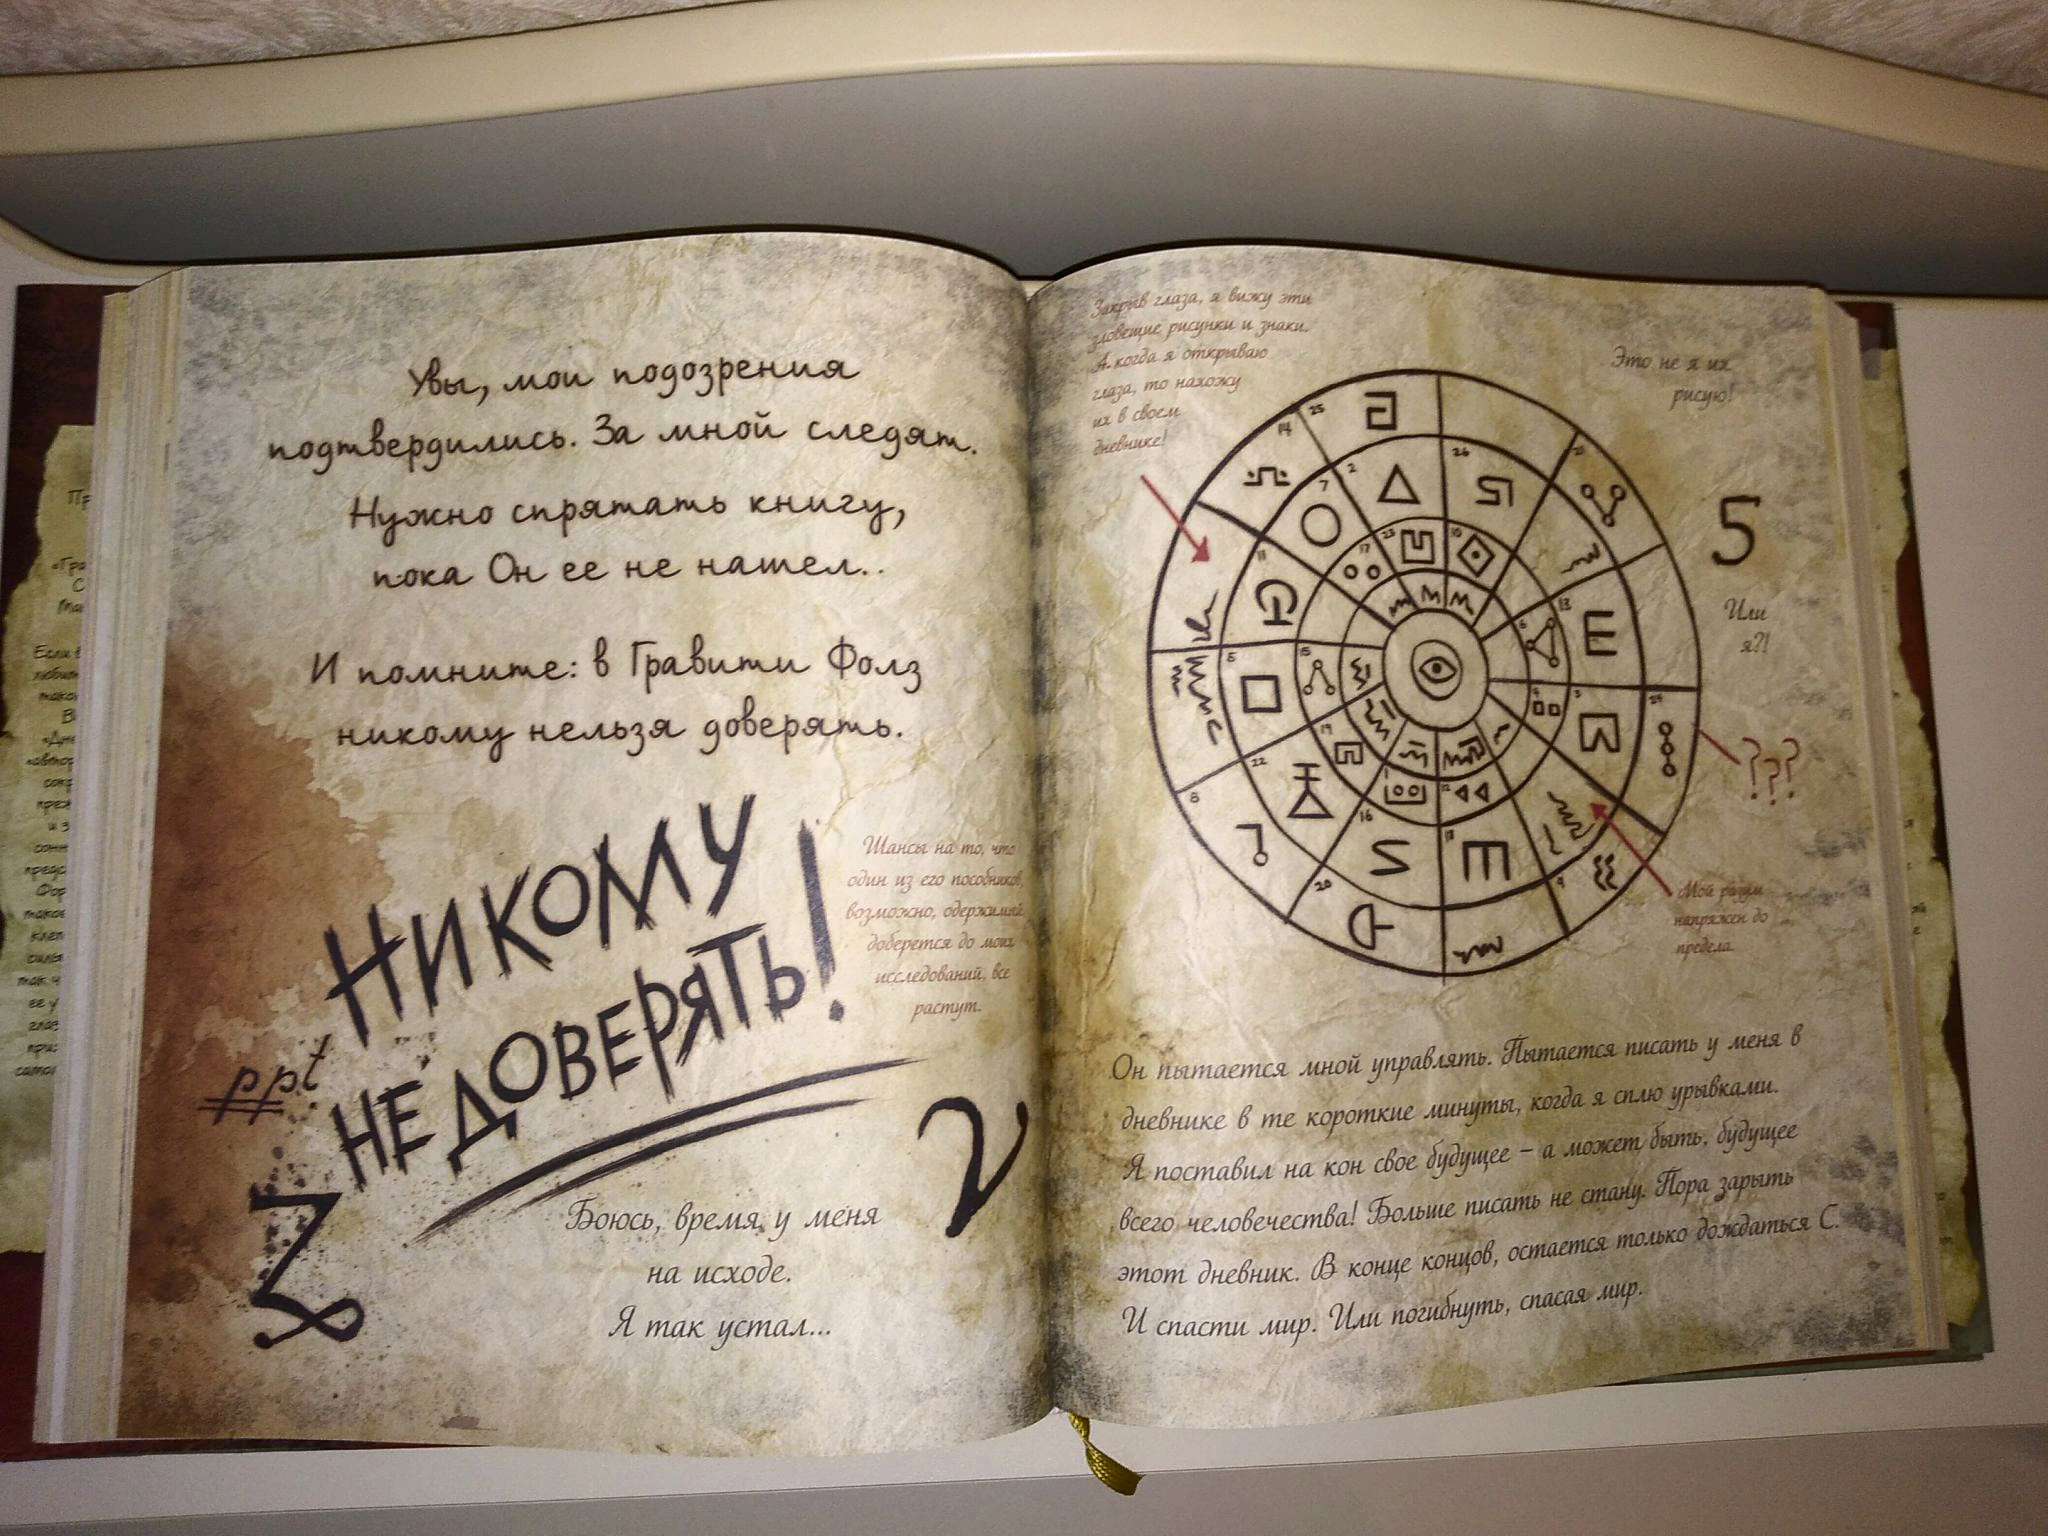 Увы, мои подозрения
подтвердились. За мной следят.
Нужно спрятать книгу,
пока Он ее не нашел..
И помните: в Гравити Фолз
никому нельзя доверять.
НИКОМУ
НЕ ДОВЕРЯТЬ!
Шансы на то, что
один из его пособников,
возможно, одержимый
доберется до моих
исследований, все
растут.
ppt
Боюсь, время у меня
на исходе.
Я так устал...
Закрыв глаза, я вижу эти
зловещие рисунки и знаки.
А когда я открываю
глаза, то нахожу
их в своем
дневнике!
Это не я их
рисую!
5
Или
я?!
???
Мой разум
напряжен до
предела.
25
14
2
7
26
21
11
17
23
10
13
6
5
15
4
3
24
19
22
8
16
12
18
9
20
Он пытается мной управлять. Пытается писать у меня в
дневнике в те короткие минуты, когда я сплю урывками.
Я поставил на кон свое будущее – а может быть, будущее
всего человечества! Больше писать не стану. Пора зарыть
этот дневник. В конце концов, остается только дождаться С.
И спасти мир. Или погибнуть, спасая мир.